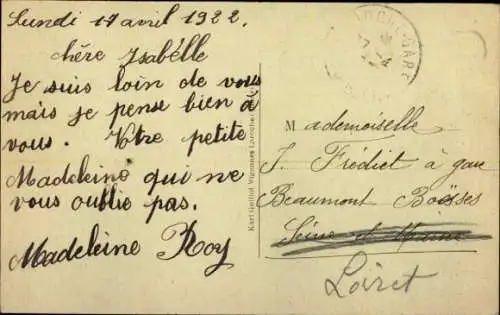 Lundi 17 avril 1922.
chère Isabélle
Je suis loin de vous
mais je pense bien à
vous. Votre petite
Madeleine qui ne
vous oublie pas.
Madeleine Roy
Mademoiselle
J. Frédict à gau
Beaumont Boësses
Seine et Marne
Loiret